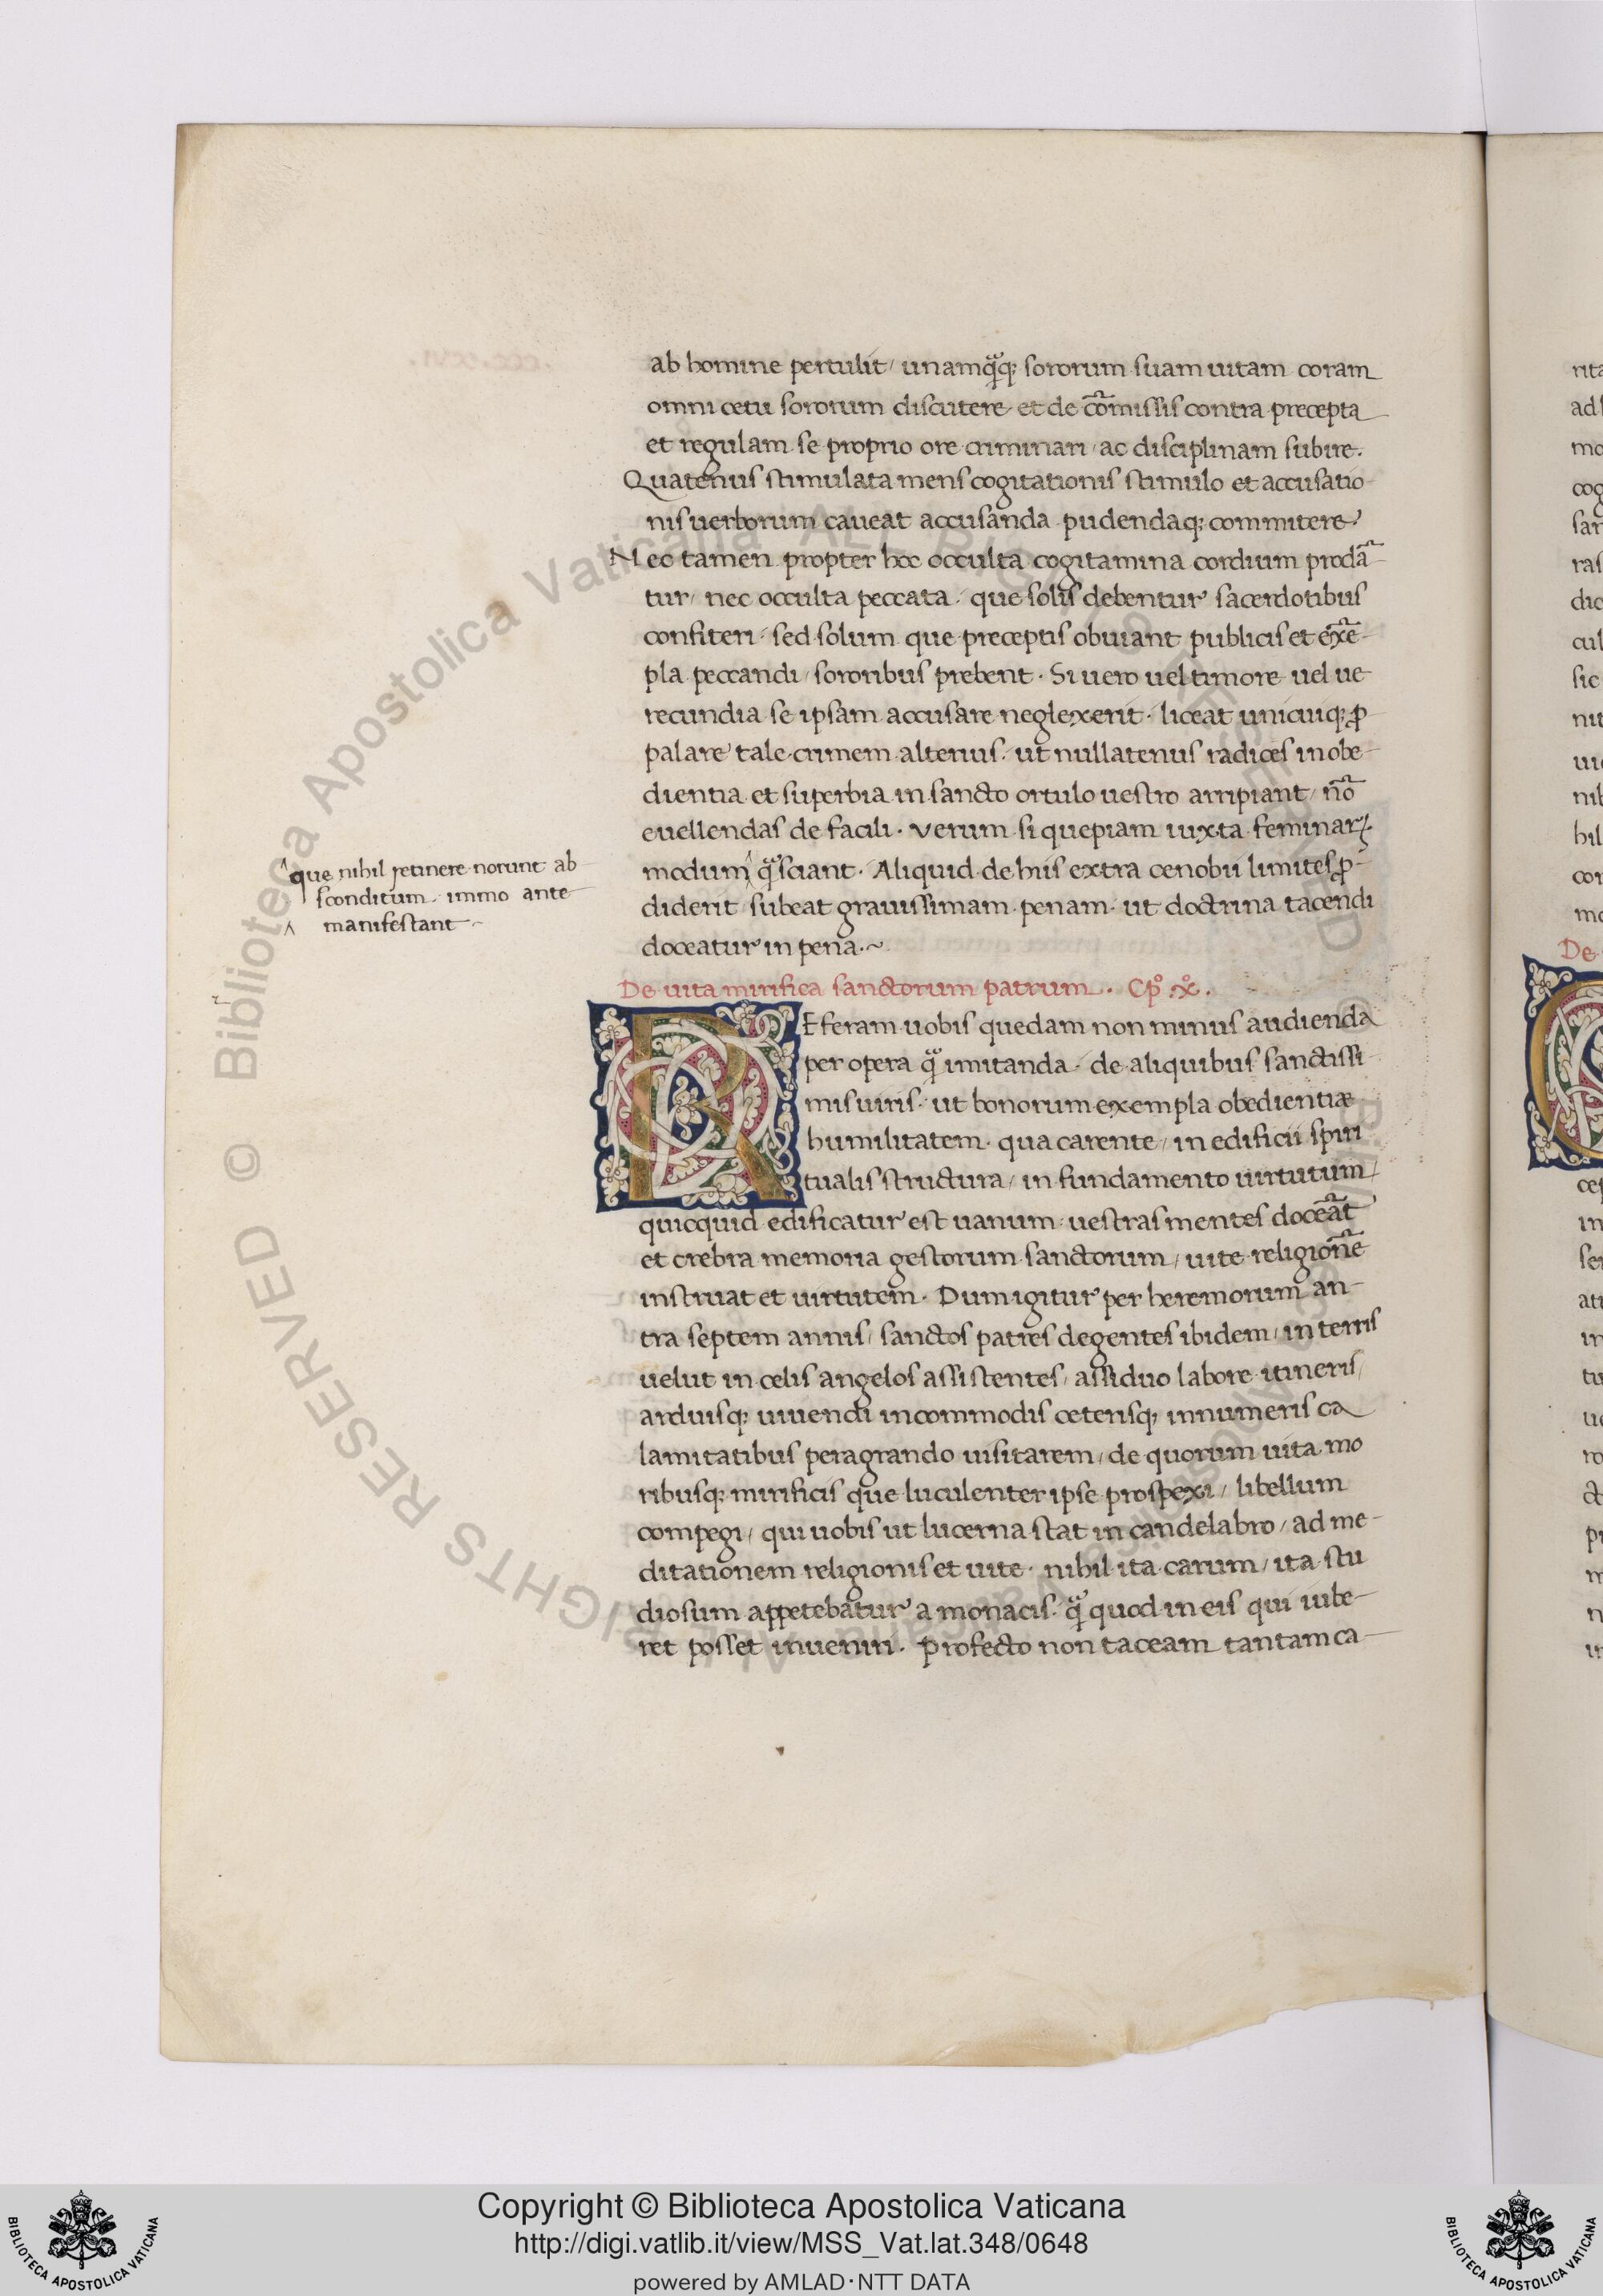 ab homine pertulit / unamq̃q; sororum suam uitam coram
omni cetu sororum discutere et de cõmissis contra precepta
et regulam se proprio ore criminari / ac disciplinam subire.
Quatenus stimulata mens cogitationis stimulo et accusatio-
nis uerborum caueat accusanda pudendaq; commitere.
Nec tamen propter hoc occulta cogitamina cordium prodã-
tur / nec occulta peccata. que solis debentur sacerdotibus
confiteri. sed solum que preceptis obuiant publicis et exẽ-
pla peccandi / sororibus prebent. Si uero uel timore uel ue
recundia se ipsam accusare neglexerit. liceat unicuiq; ꝓ-
palare tale crimem alterius. ut nullatenus radices inobe-
dientia et superbia in sancto ortulo uestro arripiant / nõ
euellendas de facili. Verum si quepiam iuxta feminaꝝ
modum ^ q̃ sciant. Aliquid de his extra cenobii limites ꝓ-
^ que nihil retinere norunt ab
sconditum. immo ante
^ manifestant
diderit subeat grauissimam penam. ut doctrina tacendi
doceatur in pena.~
De uita mirifica sanctorum patrum. Cp̊. x̊.
REferam uobis quedam non minus audienda
per opera q̃ imitanda. de aliquibus sanctissi
mis uiris. ut bonorum exempla obedientiæ
humilitatem. qua carente / in edificii spiri
tualis structura / in fundamento uirtutum /
quicquid edificatur est uanum. uestras mentes doceãt
et crebra memoria gestorum sanctorum / uite religionẽ
instruat et uirtutem. Dum igitur per heremorum an-
tra septem annis / sanctos patres degentes ibidem / in terris
uelut in celis angelos assistentes / assiduo labore itineris /
arduisq; uiuendi incommodis ceterisq; innumeris ca
lamitatibus peragrando uisitarem / de quorum uita mo
ribusq; mirificis que luculenter ipse prospexi / libellum
compegi / qui uobis ut lucerna stat in candelabro / ad me-
ditationem religionis et uite. nihil ita carum / ita stu
diosum appetebatur a monacis. q̃ quod in eis qui iube-
ret posset inueniri. Profecto non taceam tantam ca-
© Biblioteca Apostolica Vaticana ALL RIGHTS RESERVED
Copyright © Biblioteca Apostolica Vaticana
http://digi.vatlib.it/view/MSS_Vat.lat.348/0648
powered by AMLAD·NTT DATA
BIBLIOTECA APOSTOLICA VATICANA
BIBLIOTECA APOSTOLICA VATICANA